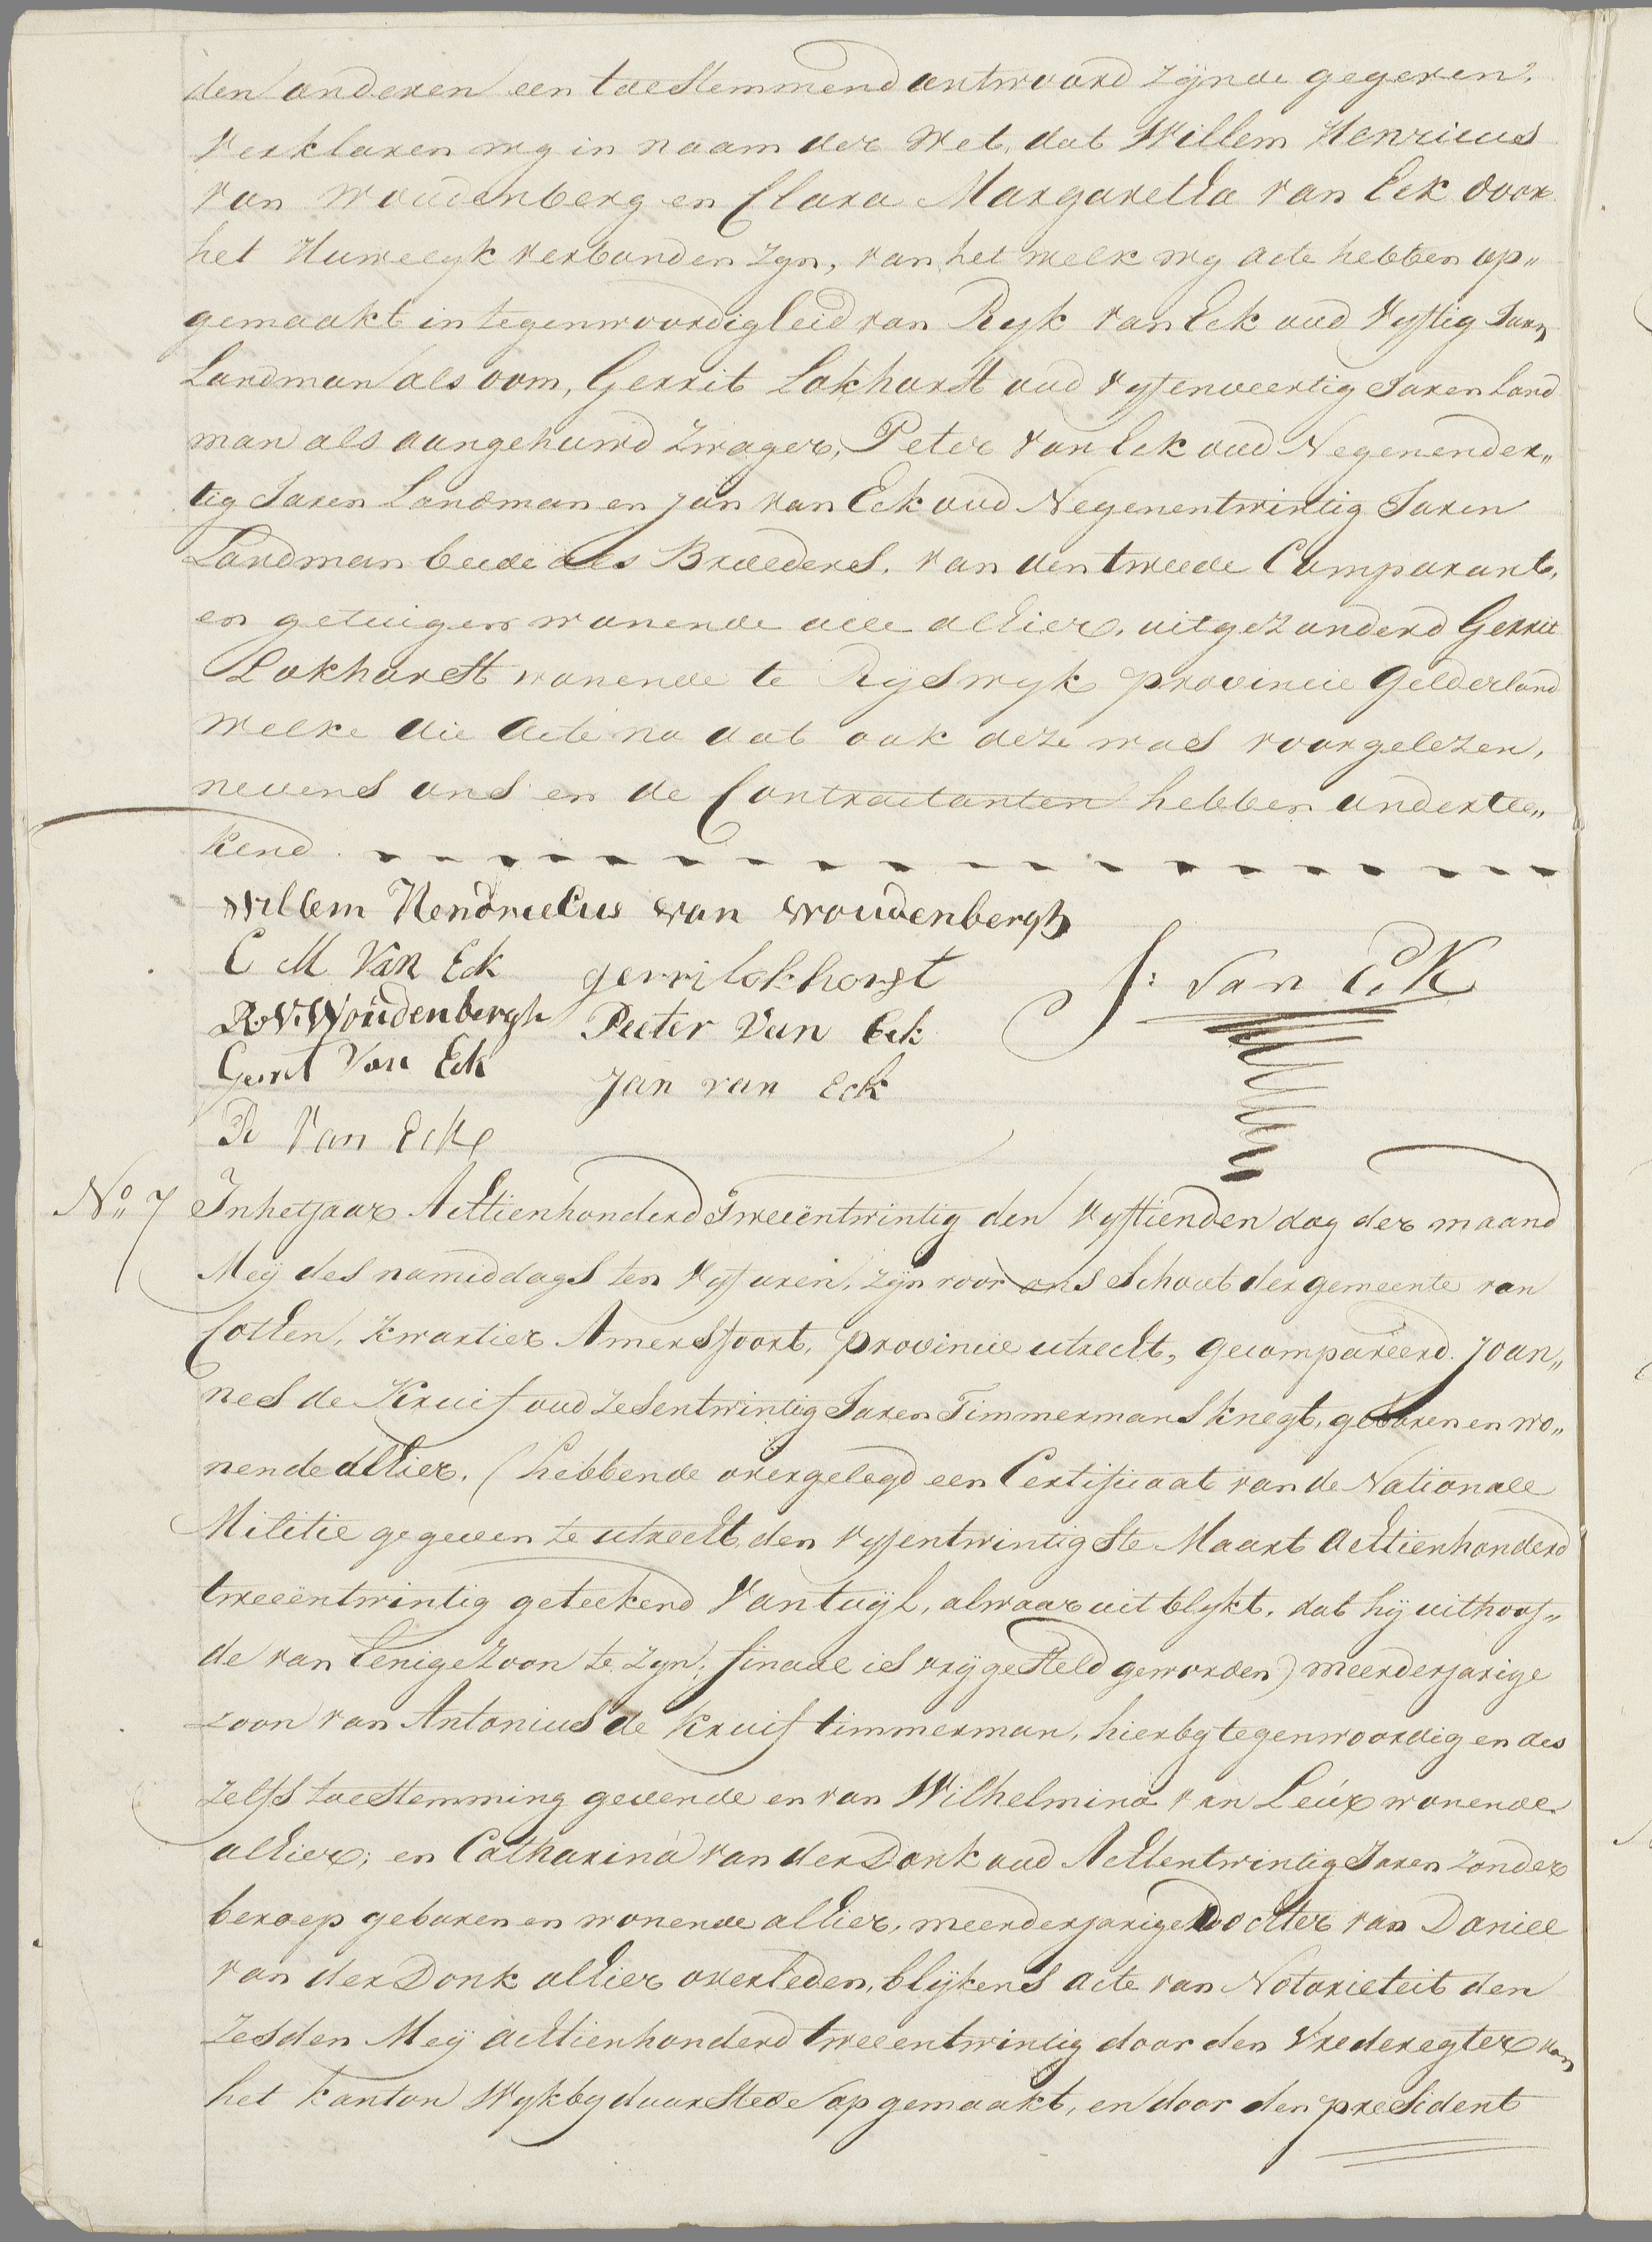 den anderen een toestemmend antwoord zijnde gegeven,
Verklaren wy in naam der Wet, dat Willem Henricus
van Woudenberg en Clara Margaretha van Eck door
het Huwelyk verbonden zyn, van het welk wy acte hebben op„
gemaakt in tegenwoordigheid van Ryk van Eck oud Vyftig Jaren
Landman als oom, Gerrit Lokhorst oud vyfenveertig Jaren Land
man als aangehuwd Zwager, Peter van Eck oud Negenender„
tig Jaren Landman en Jan van Eck oud Negenentwintig Jaren
Landman beide als Broeders, van den tweede Comparant,
en getuigen wonende alle alhier, uitgezonderd Gerrit
Lokhorst wonende te Ryswyk provincie Gelderland
welke die Acte na dat ook deze was voorgelezen,
nevens ons en de Contractanten hebben ondertee„
kend.
Willem Hendriekus van Woudenbergh
C M Van Eck gerrit lokhorst J: van Eck
R. V. Woudenbergh Peeter Van Eck
Gerrit Van Eck Jan van Eck
R Van Eck
No 7 In het jaar Achtienhonderd Tweeëntwintig den Vyftienden dag der maand
Meij des namiddags ten Vyf uren, zijn voor ons Schout der gemeente van
Cothen, Kwartier Amersfoort, provincie utrecht, gecompareerd. Joan„
nes de Kruif oud zesentwintig Jaren Timmermans knegt, geboren en wo„
nende alhier. (hebbende overgelegd een Certificaat van de Nationale
Militie gegeven te utrecht, den vyfentwintigste Maart Achtienhonderd
tweeëntwintig geteekend Van Tuijl, alwaar uit blykt, dat hij uithoof„
de van Eenige zoon te zyn, finaal is vrijgesteld geworden) meerderjarige
zoon van Antonius de Kruif timmerman, hierby tegenwoordig en des
zelfs toestemming gevende en van Wilhelmina van Leur wonende
alhier; en Catharina van der Donk oud Achtentwintig Jaren zonder
beroep geboren en wonende alhier, meerderjarige Dochter van Daniel
van der Donk alhier overleden, blijkens acte van Notarieteit den
zesden Meij achtienhonderd tweeentwintig door den Vrederegter van
het kanton Wykbyduurstede opgemaakt, en door den president